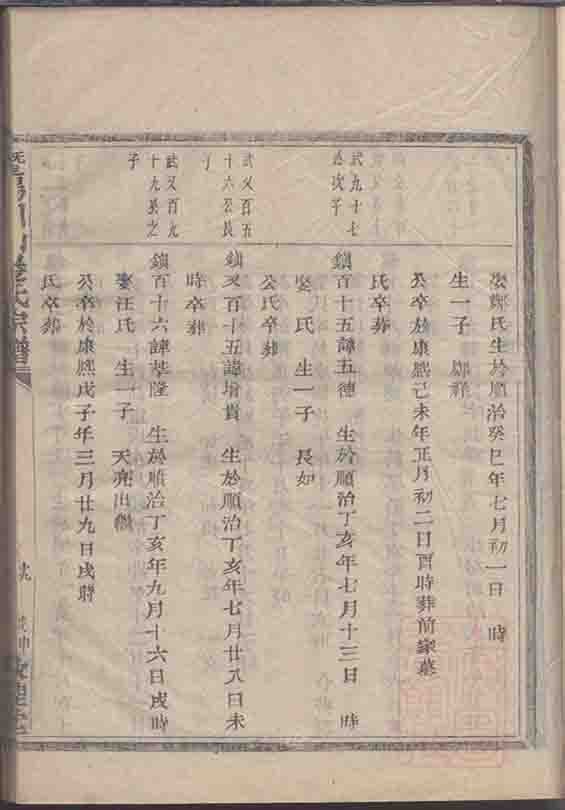 娶鄭氏生於順治癸巳年七月初一日　時
生一子
公卒於康熙己未年正月初二日酉時葬前家墓
氏卒葬
武九十七
公次子
鎮百十五諱五德　生於順治丁亥年七月十三日　時
娶　氏　生一子　長如
公氏卒葬
武又百五
十六公長
子
鎮又百十五諱增貴　生於順治丁亥年七月廿八日未
時卒葬
武又百九
十九公之
子
鎮百十六諱基隆　生於順治丁亥年九月十六日戌時
娶汪氏　生一子　天亮出繼
公卒於康熙戊子年三月廿九日戌時
氏卒葬
氏宗譜